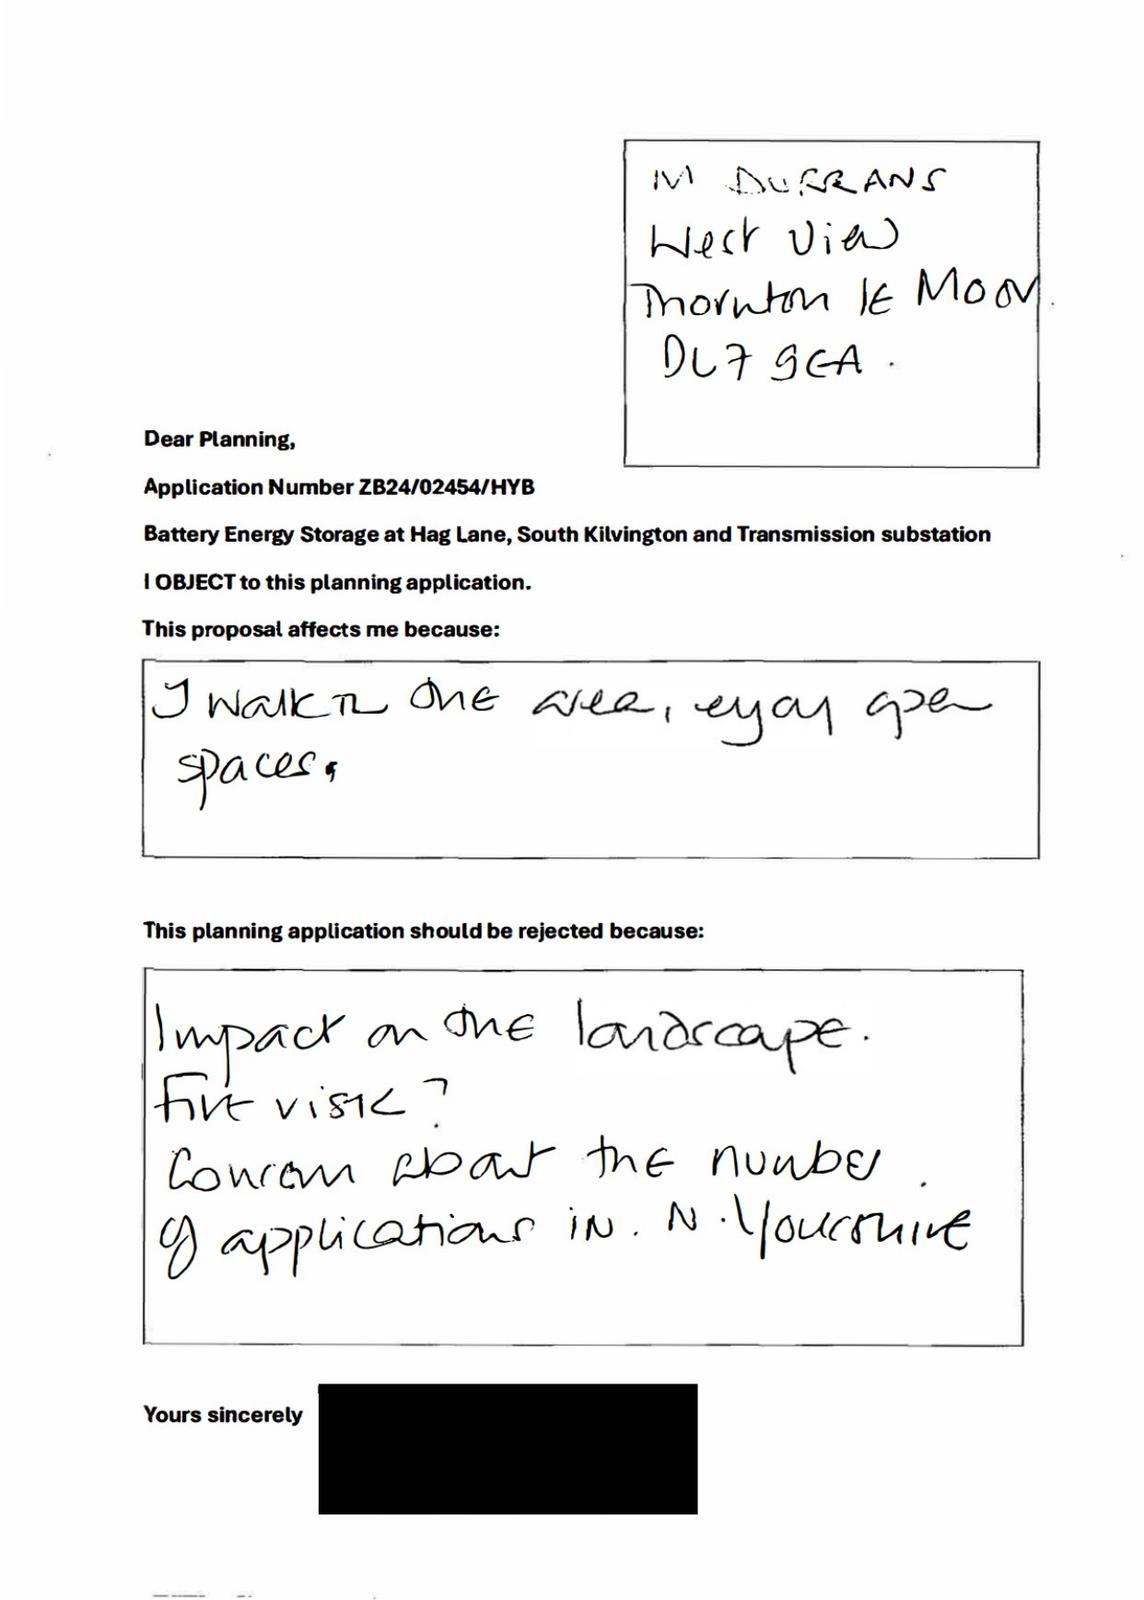 M DURRANS
West View
Thornton le Moor
DL7 9EA.
Dear Planning,
Application Number ZB24/02454/HYB
Battery Energy Storage at Hag Lane, South Kilvington and Transmission substation
I OBJECT to this planning application.
This proposal affects me because:
I walk in the area, enjoy open
spaces.
This planning application should be rejected because:
Impact on the landscape.
Fire risk?
Concern about the number
of applications in. N. Yourshire
Yours sincerely